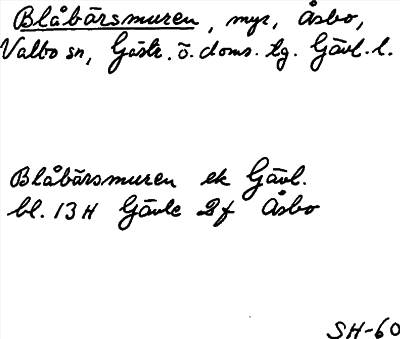 Blåbärsmuren, myr, Åsbo,
Valbo sn, Gästr. ö. doms. tg. Gävl. l.
Blåbärsmuren ek Gävl.
bl. 13 H Gävle 2 f Åsbo
SH-60